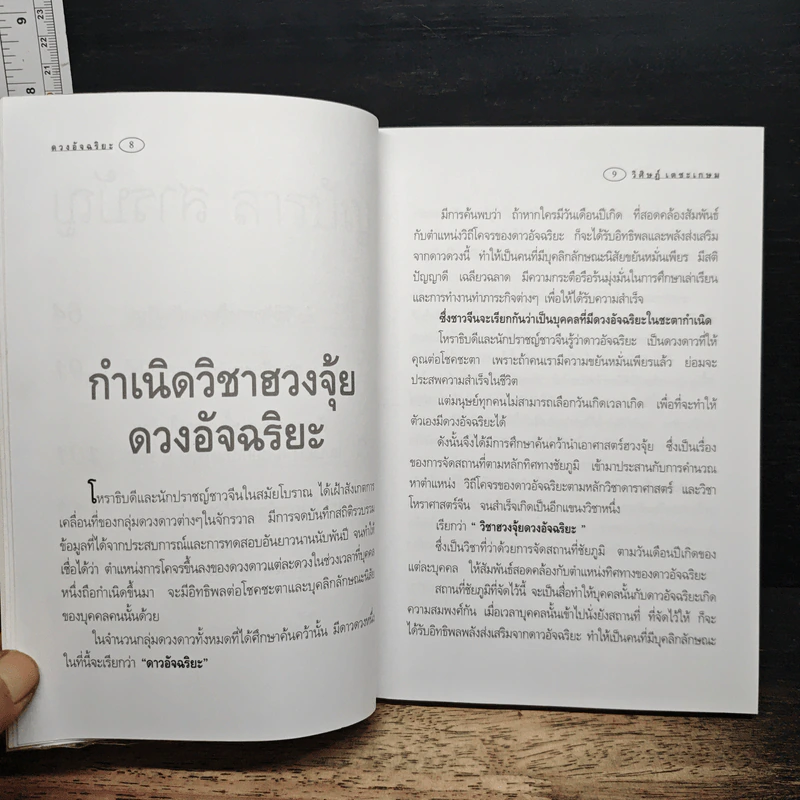 ดวงอัจฉริยะ 8
กำเนิดวิชาฮวงจุ้ย
ดวงอัจฉริยะ
โหราธิบดีและนักปราชญ์ชาวจีนในสมัยโบราณ ได้เฝ้าสังเกตการ
เคลื่อนที่ของกลุ่มดวงดาวต่างๆในจักรวาล มีการจดบันทึกสถิติรวบรวม
ข้อมูลที่ได้จากประสบการณ์และการทดสอบอันยาวนานนับพันปี จนทำให้
เชื่อได้ว่า ตำแหน่งการโคจรขึ้นลงของดวงดาวแต่ละดวงในช่วงเวลาที่บุคคล
หนึ่งถือกำเนิดขึ้นมา จะมีอิทธิพลต่อโชคชะตาและบุคลิกลักษณะนิสัย
ของบุคคลคนนั้นด้วย
ในจำนวนกลุ่มดวงดาวทั้งหมดที่ได้ศึกษาค้นคว้านั้น มีดาวดวงหนึ่ง
ในที่นี้จะเรียกว่า “ดาวอัจฉริยะ”
9 วิศิษฏ์ เตชะเกษม
มีการค้นพบว่า ถ้าหากใครมีวันเดือนปีเกิด ที่สอดคล้องสัมพันธ์
กับตำแหน่งวิถีโคจรของดาวอัจฉริยะ ก็จะได้รับอิทธิพลและพลังส่งเสริม
จากดาวดวงนี้ ทำให้เป็นคนที่มีบุคลิกลักษณะนิสัยขยันหมั่นเพียร มีสติ
ปัญญาดี เฉลียวฉลาด มีความกระตือรือร้นมุ่งมั่นในการศึกษาเล่าเรียน
และการทำงานทำภาระกิจต่างๆ เพื่อให้ได้รับความสำเร็จ
ซึ่งชาวจีนจะเรียกกันว่าเป็นบุคคลที่มีดวงอัจฉริยะในชะตากำเนิด
โหราธิบดีและนักปราชญ์ชาวจีนรู้ว่าดาวอัจฉริยะ เป็นดวงดาวที่ให้
คุณต่อโชคชะตา เพราะถ้าคนเรามีความขยันหมั่นเพียรแล้ว ย่อมจะ
ประสพความสำเร็จในชีวิต
แต่มนุษย์ทุกคนไม่สามารถเลือกวันเกิดเวลาเกิด เพื่อที่จะทำให้
ตัวเองมีดวงอัจฉริยะได้
ดังนั้นจึงได้มีการศึกษาค้นคว้านำเอาศาสตร์ฮวงจุ้ย ซึ่งเป็นเรื่อง
ของการจัดสถานที่ตามหลักทิศทางชัยภูมิ เข้ามาประสานกับการคำนวณ
หาตำแหน่ง วิถีโคจรของดาวอัจฉริยะตามหลักวิชาดาราศาสตร์ และวิชา
โหราศาสตร์จีน จนสำเร็จเกิดเป็นอีกแขนงวิชาหนึ่ง
เรียกว่า “ วิชาฮวงจุ้ยดวงอัจฉริยะ ”
ซึ่งเป็นวิชาที่ว่าด้วยการจัดสถานที่ชัยภูมิ ตามวันเดือนปีเกิดของ
แต่ละบุคคล ให้สัมพันธ์สอดคล้องกับตำแหน่งทิศทางของดาวอัจฉริยะ
สถานที่ชัยภูมิที่จัดไว้นี้ จะเป็นสื่อทำให้บุคคลนั้นกับดาวอัจฉริยะเกิด
ความสมพงศ์กัน เมื่อเวลาบุคคลนั้นเข้าไปนั่งยังสถานที่ ที่จัดไว้ให้ ก็จะ
ได้รับอิทธิพลพลังส่งเสริมจากดาวอัจฉริยะ ทำให้เป็นคนที่มีบุคลิกลักษณะ
9
8
23
22
21